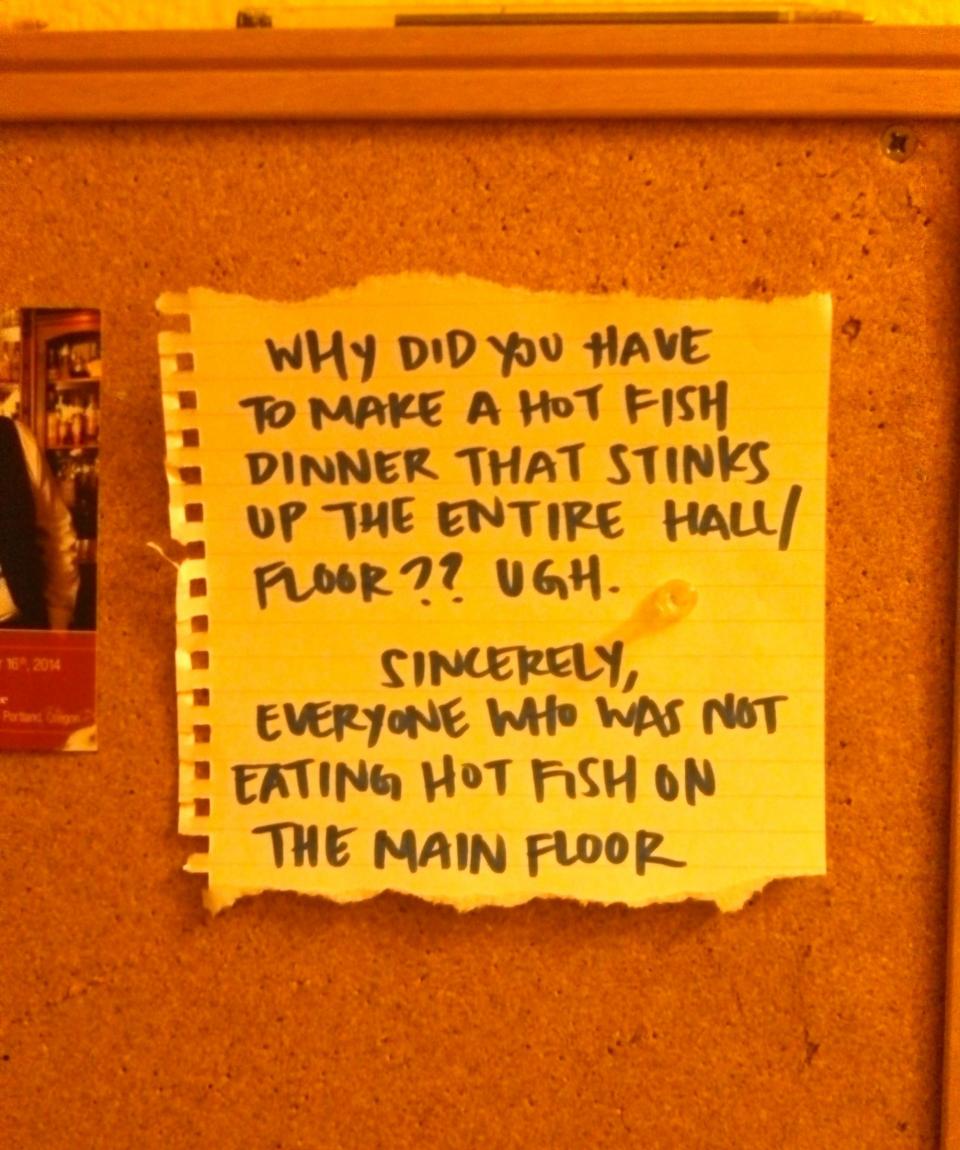 WHY DID YOU HAVE
TO MAKE A HOT FISH
DINNER THAT STINKS
UP THE ENTIRE HALL/
FLOOR?? UGH.
SINCERELY,
EVERYONE WHO WAS NOT
EATING HOT FISH ON
THE MAIN FLOOR
16th, 2014
Portland, Oregon